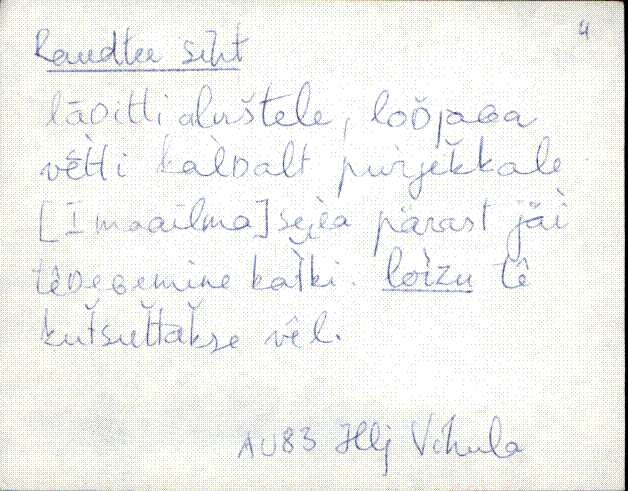 4
Raudtee siht
lāᴅitti aluštele, loŏjaɢa
vētti kàlᴅalt purjekkale
[I maailma] sejèa pärast jäi
têᴅeɢemine katki. loìzu tê
kutsuttakse vêl.
AU83 Hlj Vihula